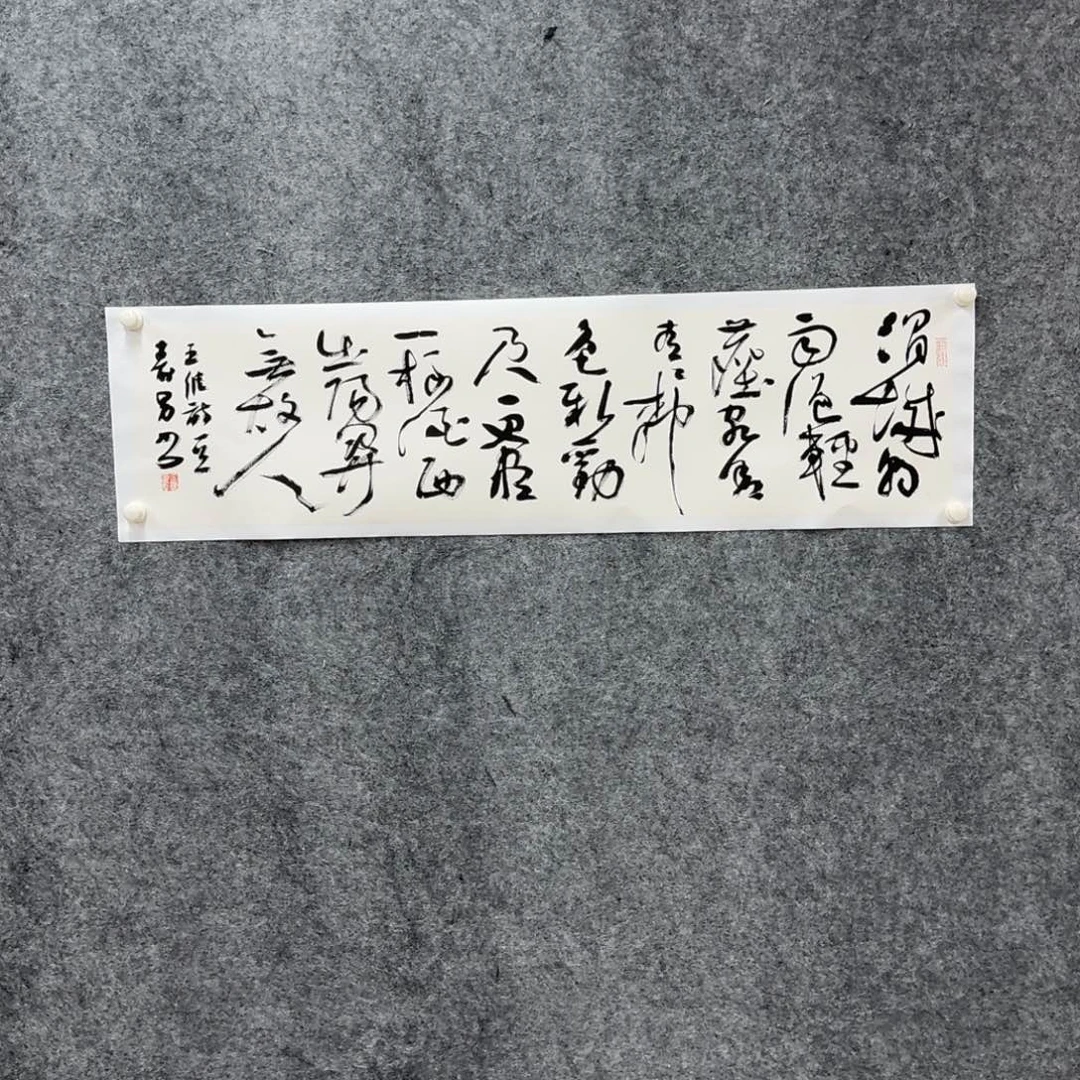 渭城朝
雨浥輕
塵客舍
青々柳
色新勸
君更盡
一杯酒西
出陽關
無故人
王維詩
书